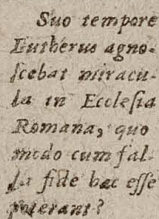 Suo tempore
Lutherus agno-
ſcebat miracu-
la in Eccleſia
Romana, quo
modo cum fal-
ſa fide hac eſſe
poterant?